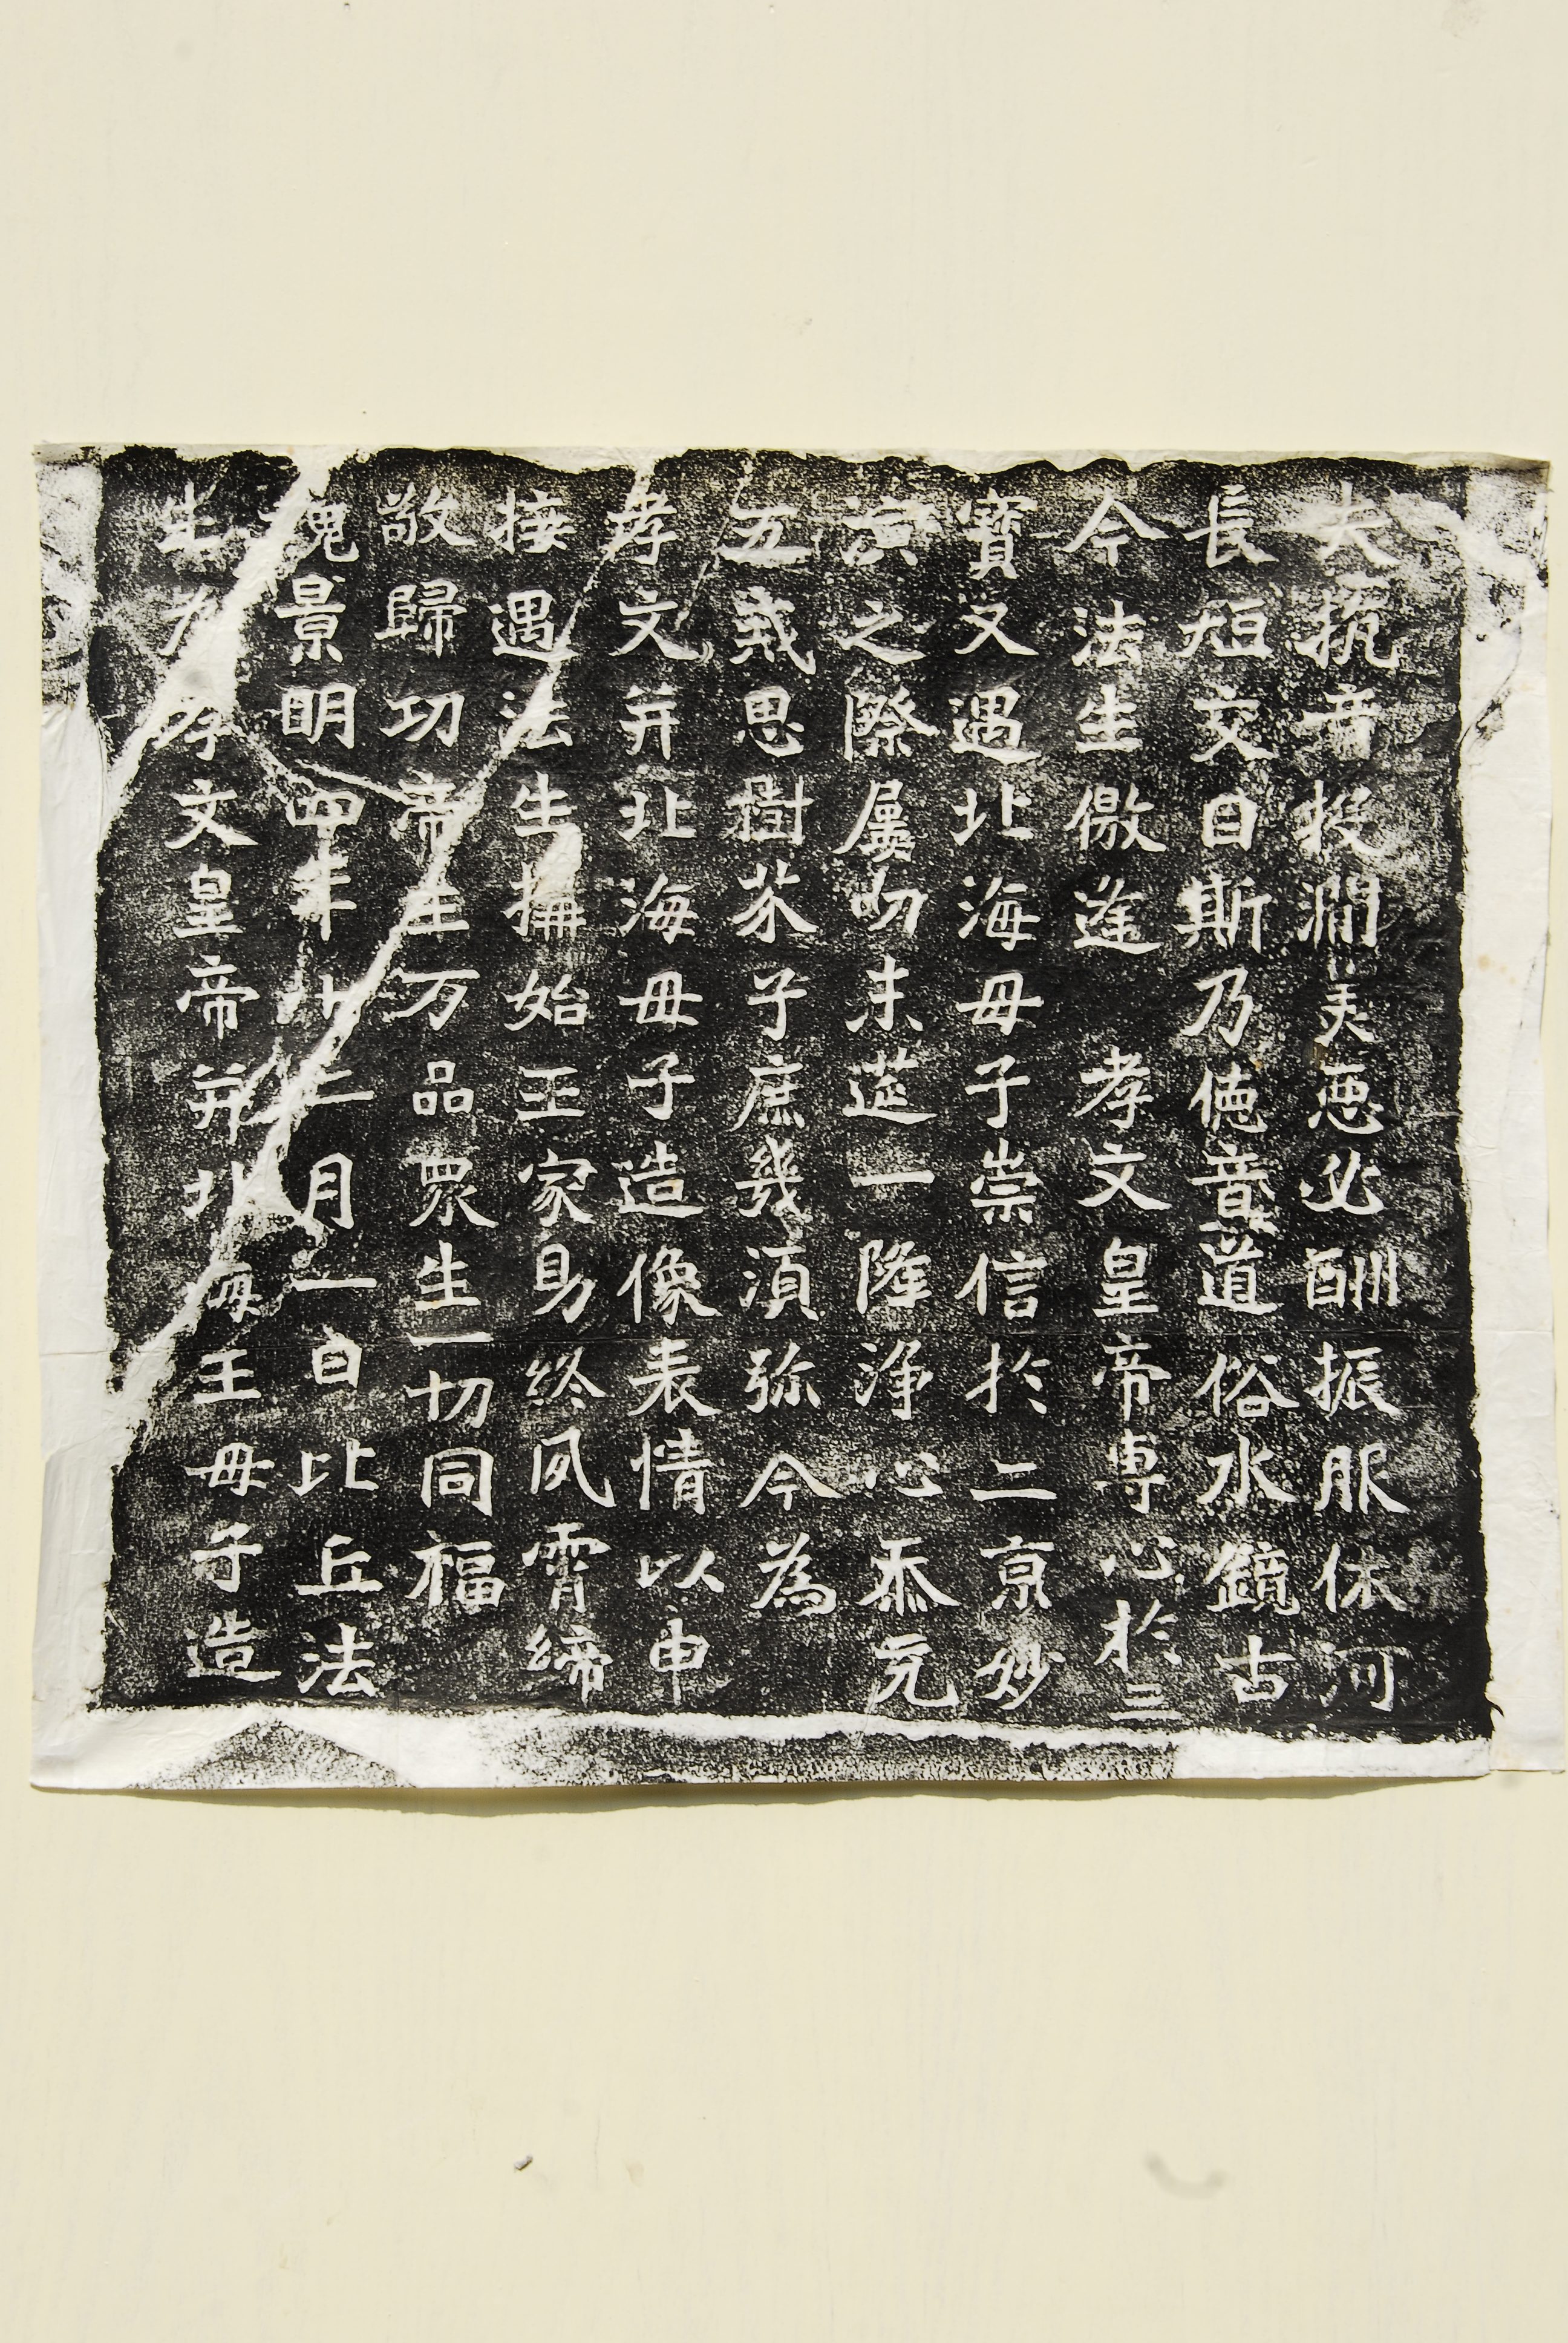 夫抗音投澗美惡必酬振服依河
長短交目斯乃德音道俗水鏡古
今法生儌逢孝文皇帝專心於三
寶又遇北海母子崇信於二京妙
演之際屢叨末筵一降淨心忝充
五戒思樹芥子庶幾須弥今為
孝文并北海母子造像表情以申
接遇法生搆始王家助終夙霄締
敬歸功帝王万品眾生一切同福
魏景明四年十二月一日比丘法
生為孝文皇帝并北海王母子造